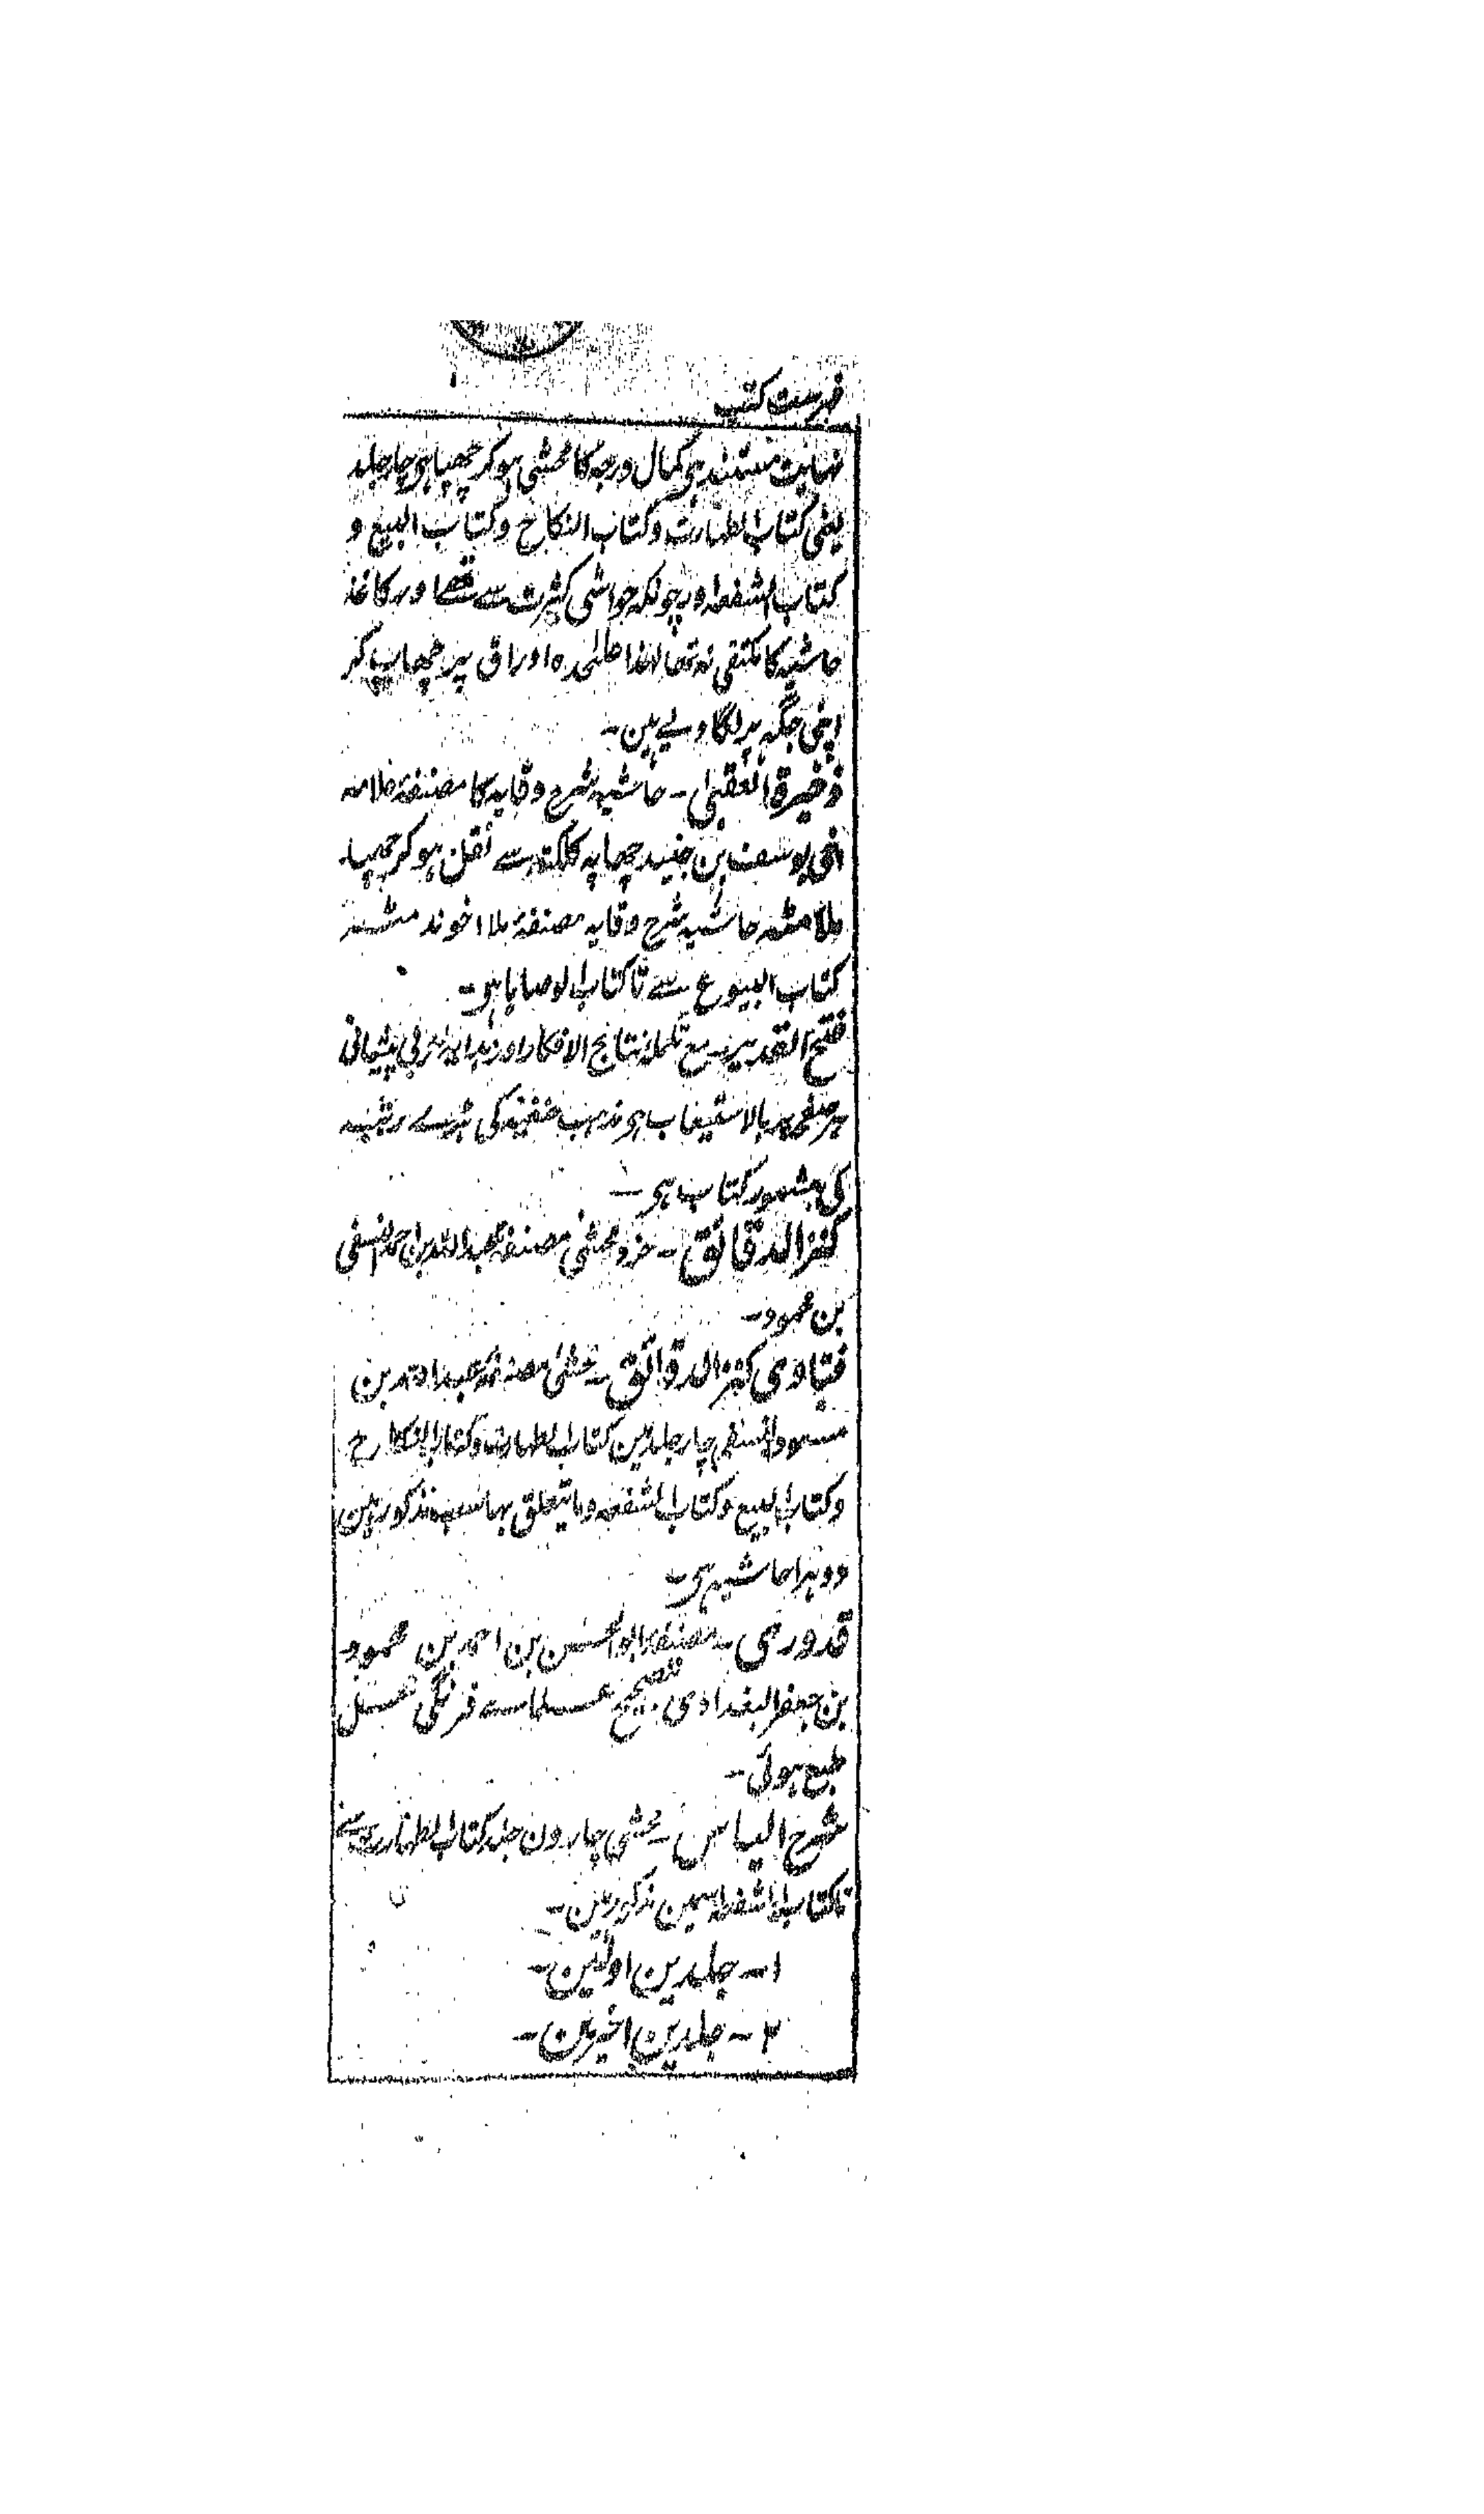 فہرست کتب
نہایت مستند ہی کمال درجہ کا محشی ہو کر چھپا ہی چار جلد
یعنی کتاب الطہارت و کتاب النکاح و کتاب البیع و
کتاب الشفعہ اور چونکہ حواشی کثرت سے تھے اور کاغذ
حاشیہ کا مکتفی نہ تھا لہذا علٰحدہ اوراق پر چھاپ کر
اپنی جگہ پر لگا دیے ہین ۔
ذخیرۃ العقبیٰ ۔ حاشیہ شرح وقایہ کا مصنفہ علامہ
اخی یوسف بن جنید چھاپہ کلکتہ سے نقل ہو کر چھپا۔
ملا مشہ حاشیہ شرح وقایہ مصنفہ ملا اخوند مشہ
کتاب البیوع سے تا کتاب الوصایا ہی ۔
فتح القدیر ۔ مع تکملہ نتائج الافکار اور ہدایہ عربی پیشانی
ہر صفحہ پر بالاستیعاب ہی مذہب حنفیہ کی بڑے رتبہ
کی مشہور کتاب ہی ۔
کنز الدقائق ۔ خرد محشی مصنفہ عبد اللہ بن احمد النسفی
بن محمود ۔
فتاوی کنز الدقائق ۔ محشی مصنفہ عبد اللہ بن
مسعود النسفی چار جلدین کتاب الطہارت و کتاب النکاح
و کتاب البیع و کتاب الشفعہ وما یتعلق بہا سب مذکور ہین
دوہرا حاشیہ ہی ۔
قدوری ۔ مصنفہ ابو الحسن بن احمد بن محمود
بن جعفر البغدادی بتصحیح علماے فرنگی محل
طبع ہوئی ۔
شرح الیاس ۔ محشی چارون جلد کتاب الطہارت سے
تا کتاب الشفعہ اسمین مذکور ہین ۔
۱ ۔ جلدین اولین ۔
۲ ۔ جلدین اخیرین ۔